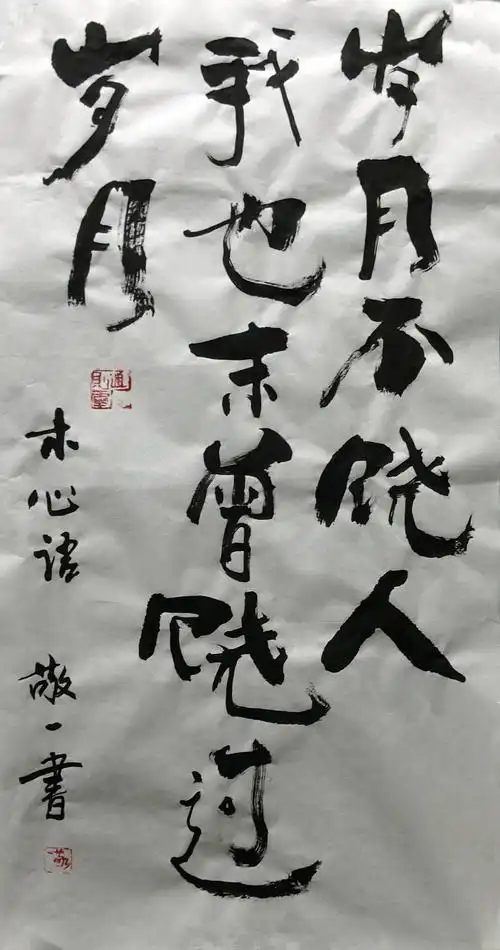 岁月不饶人
我也未曾饶过
岁月
木心语 敬一书